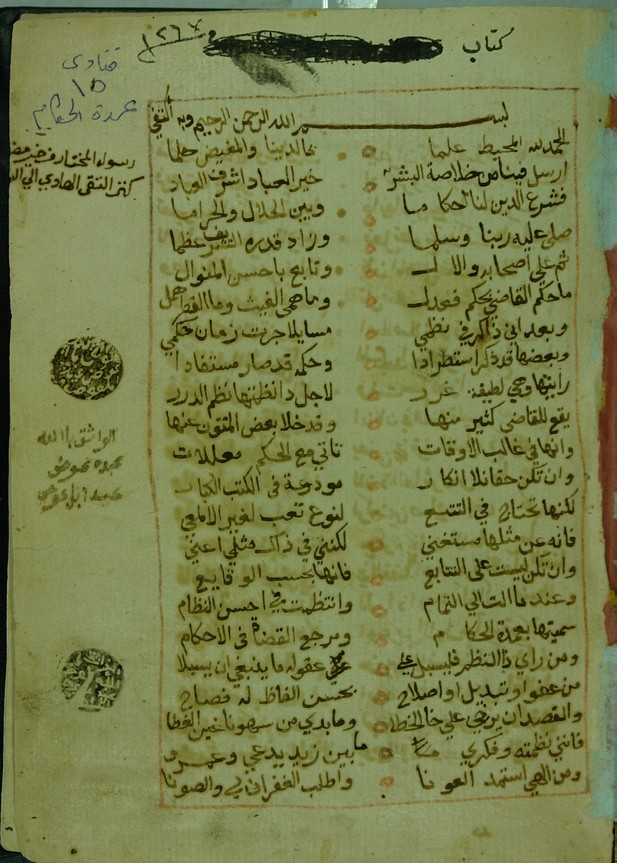 كتاب
١٢٦٧
فتاوى
١٥
عمدة الحكام
بسم الله الرحمن الرحيم وبه أكتفي
الحمد لله المحيط علما بالدينا والمفيض حلما
ارسل فينا من خلاصة البشر خير العباد اشرف العباد
رسوله المختار من خير مضر
كنز التقى الهادي الى
فشرع الدين لنا احكاما وبين الحلال والحراما
صلى عليه ربنا وسلما وزاد قدره الشريف عظما
ثم على اصحابه والال وتابع باحسن المنوال
ما حكم القاضي بحكم فعدل وما همى الغيث وما القطر همل
وبعد اني ذاكر في نظمي مسايلا جرت زمان حكمي
وبعضها قد ذكر استطرادا وحكمه قد صار مستفادا
رايتها وهي لطيفة غرر لاجل ذا نظمتها نظم الدرر
يقع للقاضي كثير منها وقد خلا بعض المتون عنها
وانها في غالب الاوقات تاتي مع الحكم معللات
وان تكن حقا بلا انكار مودوعة في الكتب الكبار
لكنها تحتاج في التتبع لنوع تعب لغير الالمعي
فانه عن مثلها مستغني لكنني في ذاك مثلي اعني
وان تكن ليست على التتابع فانها بحسب الوقايع
وعندما الت الى التمام وانتظمت في احسن النظام
سميتها بعمدة الحكام ومرجع القضاة في الاحكام
ومن راى ذا النظم فليسبل على عقوله ما ينبغي ان يسبلا
من عفو او تبديل او اصلاح بحسن الفاظ له فصاح
والقصد ان يرخي على خالي الخطا وما بدي من سهونا خير الغطا
فانني نظمته وفكري ما بين زيد يدعي وعمرو
ومن الهي استمد العونا واطلب الغفران لي والصونا
الواثق بالله
عبده عوض